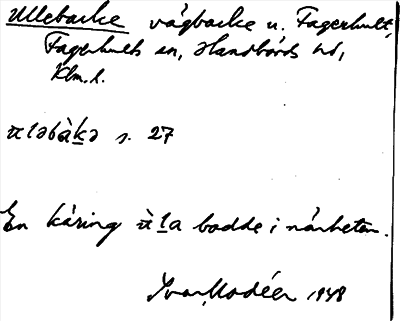 Ullebacke vägbacke n. Fagerhult,
Fagerhults sn, Handbörds hd,
Klm. l.
s. 27
En käring bodde i närheten.
Ivar Modéer 1948